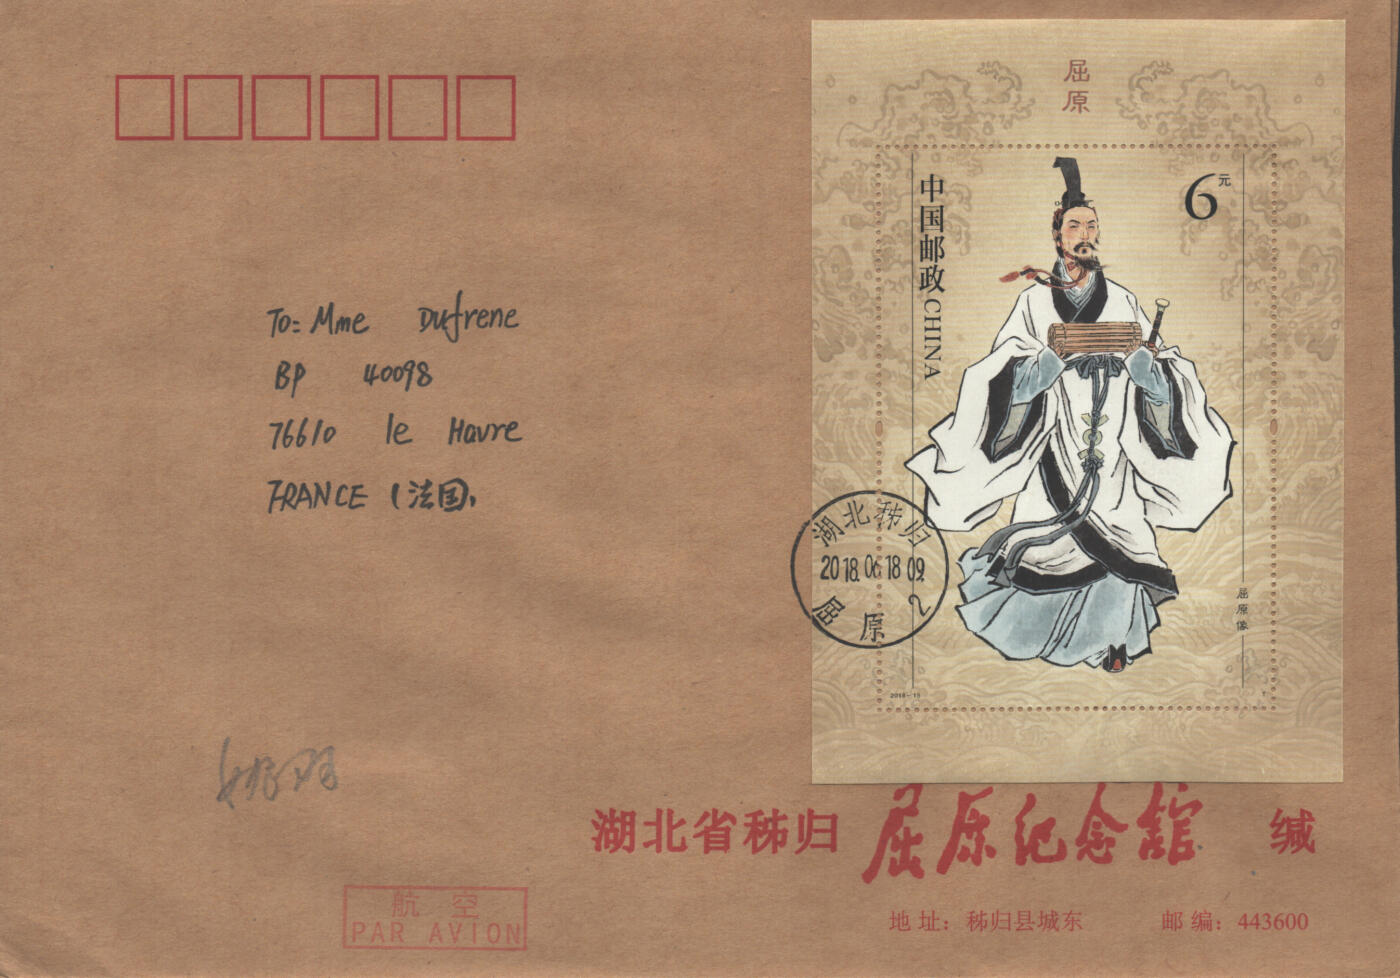 屈
原
中国邮政 CHINA
6元
To: Mme Dufrene
BP 40098
76610 le Havre
FRANCE (法国)
湖北秭归
2018.06.18 09
屈原 2
屈原像
2018-15
T
湖北省秭归 屈原纪念馆 缄
航空
PAR AVION
地址：秭归县城东 邮编：443600